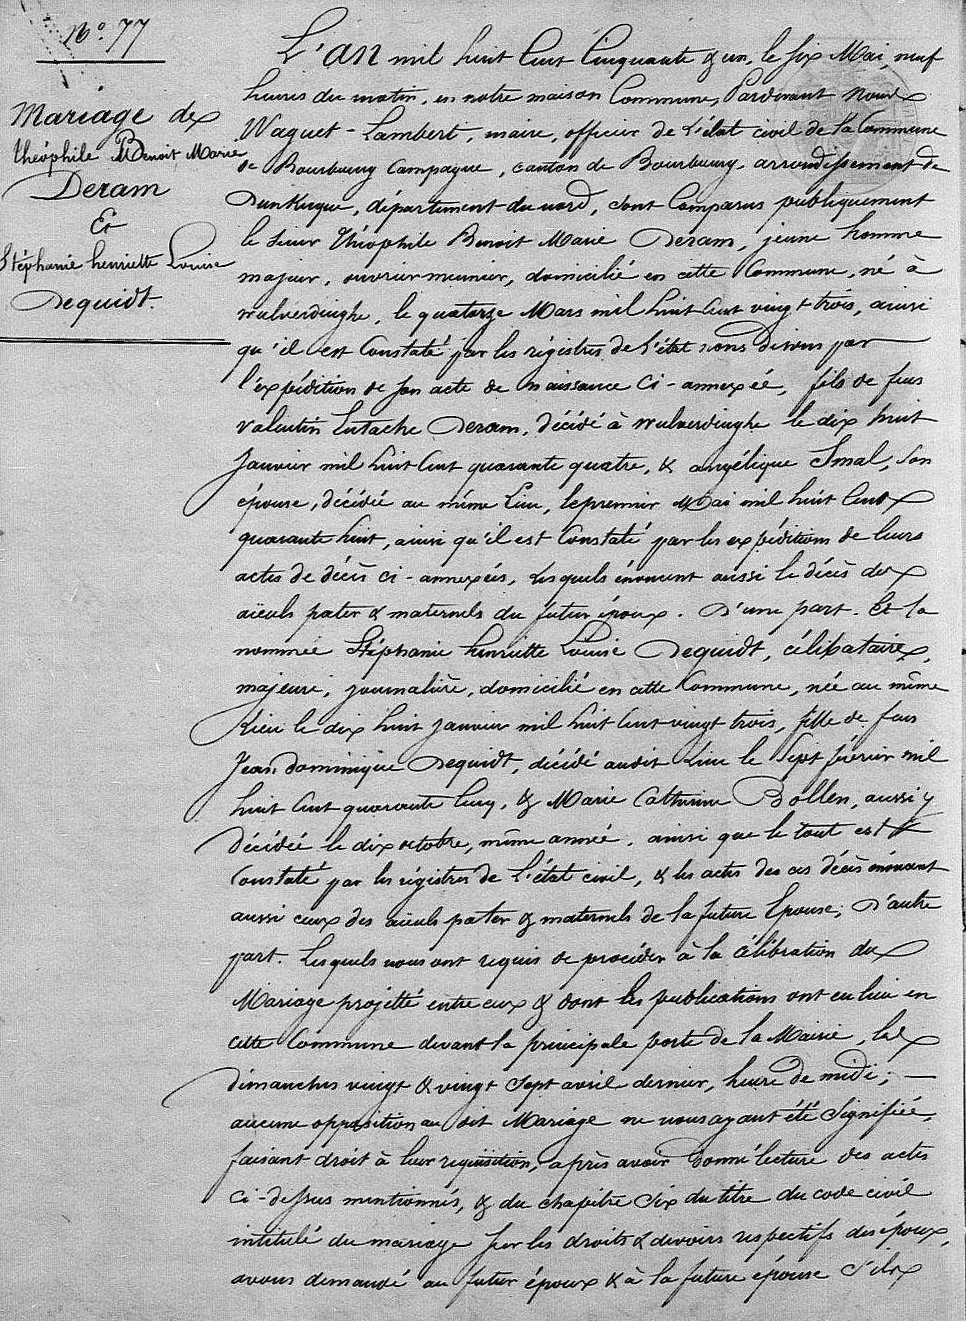 N°. 77
Mariage de
Théophile Benoit Marie
Deram
Et
Stéphanie henriette Louise
Dequidt
L'an mil huit Cent Cinquante & un, le six Mai neuf
heures du matin, en notre maison Commune, Pardevant Nous
Waguet-Lambert, maire, officier de l'état civil de la Commune
de Bourbourg Campagne, canton de Bourbourg, arrondissement de
Dunkerque, département du nord, sont Comparus publiquement
le sieur Théophile Benoit Marie Deram, jeune homme
majeur, ouvrier meunier, domicilié en cette Commune, né à
wulverdinghe, le quatorze Mars mil huit Cent vingt trois, ainsi
qu'il est Constaté par les régistres de l'état nous disons par
l'expédition de son acte de naissance ci-annexée, fils de feus
Valentin Eustache Deram, décédé à wulverdinghe le dix huit
Janvier mil huit Cent quarante quatre, & angélique Smal, son
épouse, décédée au même Lieu, le premier Mai mil huit Cent
quarante huit, ainsi qu'il est Constaté par les expéditions de leurs
actes de décès ci-annexées, lesquels énoncent aussi le décès des
aïeuls pater & maternels du futur époux. D'une part. Et la
nommée Stéphanie henriette Louise Dequidt, célibataire,
majeure, journalière, domicilié en cette Commune, née au même
Lieu le dix huit janvier mil huit Cent vingt trois, fille de feus
Jean dominique Dequidt, décédé audit Lieu le Sept février mil
huit Cent quarante Cinq, & Marie Catherine Bollen, aussi y
décédée le dix octobre, même année, ainsi que le tout est
Constaté par les régistres de l'état civil, & les actes des ces décès énoncent
aussi ceux des aïeuls pater & maternels de la future Epouse; D'autre
part. Lesquels nous ont requis de procéder à la Célébration du
Mariage projetté entre eux & dont les publications ont eu lieu en
cette Commune devant la principale porte de la Mairie, les
dimanches vingt & vingt Sept avril dernier, heure de midi;
aucune opposition au dit Mariage ne nous ayant été Signifiée,
faisant droit à leur requisition, après avoir Donné lecture des actes
ci-dessus mentionnés, & du chapitre Six du titre du code civil
intitulé du mariage sur les droits & devoirs respectifs des époux,
avons demandé au futur époux & à la future épouse S'ils